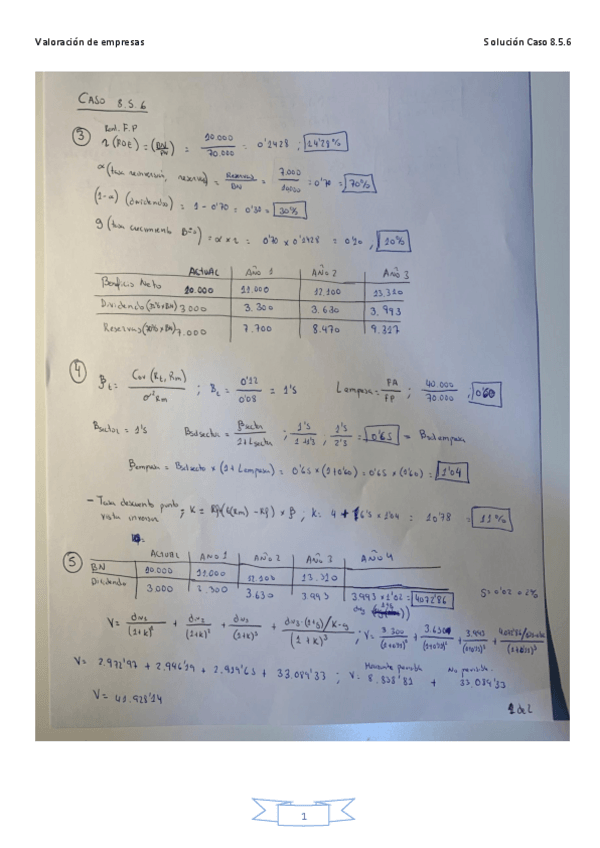 Valoración de empresas Solución Caso 8.5.6
CASO 8.5.6
Rent. F.P
③ r (ROE) = (BN/PN) = 10.000/70.000 = 0'1428 ; 14'28%
α (tasa reinversión, reservas) = Reservas/BN = 7.000/10.000 = 0'70 = 70%
(1-α) (dividendos) = 1 - 0'70 = 0'30 = 30%
g (tasa crecimiento Bº) = α × r = 0'70 × 0'1428 = 0'10 , 10%
ACTUAL AÑO 1 AÑO 2 AÑO 3
Beneficio Neto 10.000 11.000 12.100 13.310
Dividendo (30% × BN) 3.000 3.300 3.630 3.993
Reservas (70% × BN) 7.000 7.700 8.470 9.317
④ βt = Cov (Rt, Rm)/σ² Rm ; Bt = 0'12/0'08 = 1'5 Lempresa = FA/FP ; 40.000/70.000 , 0'60
Bsector = 1'5 Bsdsector = Bsector/1+Lsector ; 1'5/1+1'5 ; 1'5/2'5 = 0'65 = Bsdempresa
Bempresa = Bsdsector × (1+Lempresa) = 0'65 × (1+0'60) = 0'65 × (1'60) = 1'04
- Tasa descuento punto ; K = Rf + (E(Rm) - Rf) × β ; K = 4 + 6'5 × 1'04 = 10'78 = 11%
vista inversor
⑤ ACTUAL AÑO 1 AÑO 2 AÑO 3 AÑO 4
BN 10.000 11.000 12.100 13.310
Dividendo 3.000 3.300 3.630 3.993 3.993 × 1'02 = 4072'86 g = 0'02 = 2%
V = div1/(1+k)¹ + div2/(1+k)² + div3/(1+k)³ + div3·(1+g)/K-g/(1+k)³ ; V =
V = 2.972'97 + 2.946'19 + 2.919'63 + 33.084'33 ; V = 8.838'83 + 33.084'33
Horizonte previsible No previsible
V = 41.928'14
1 de 2
1